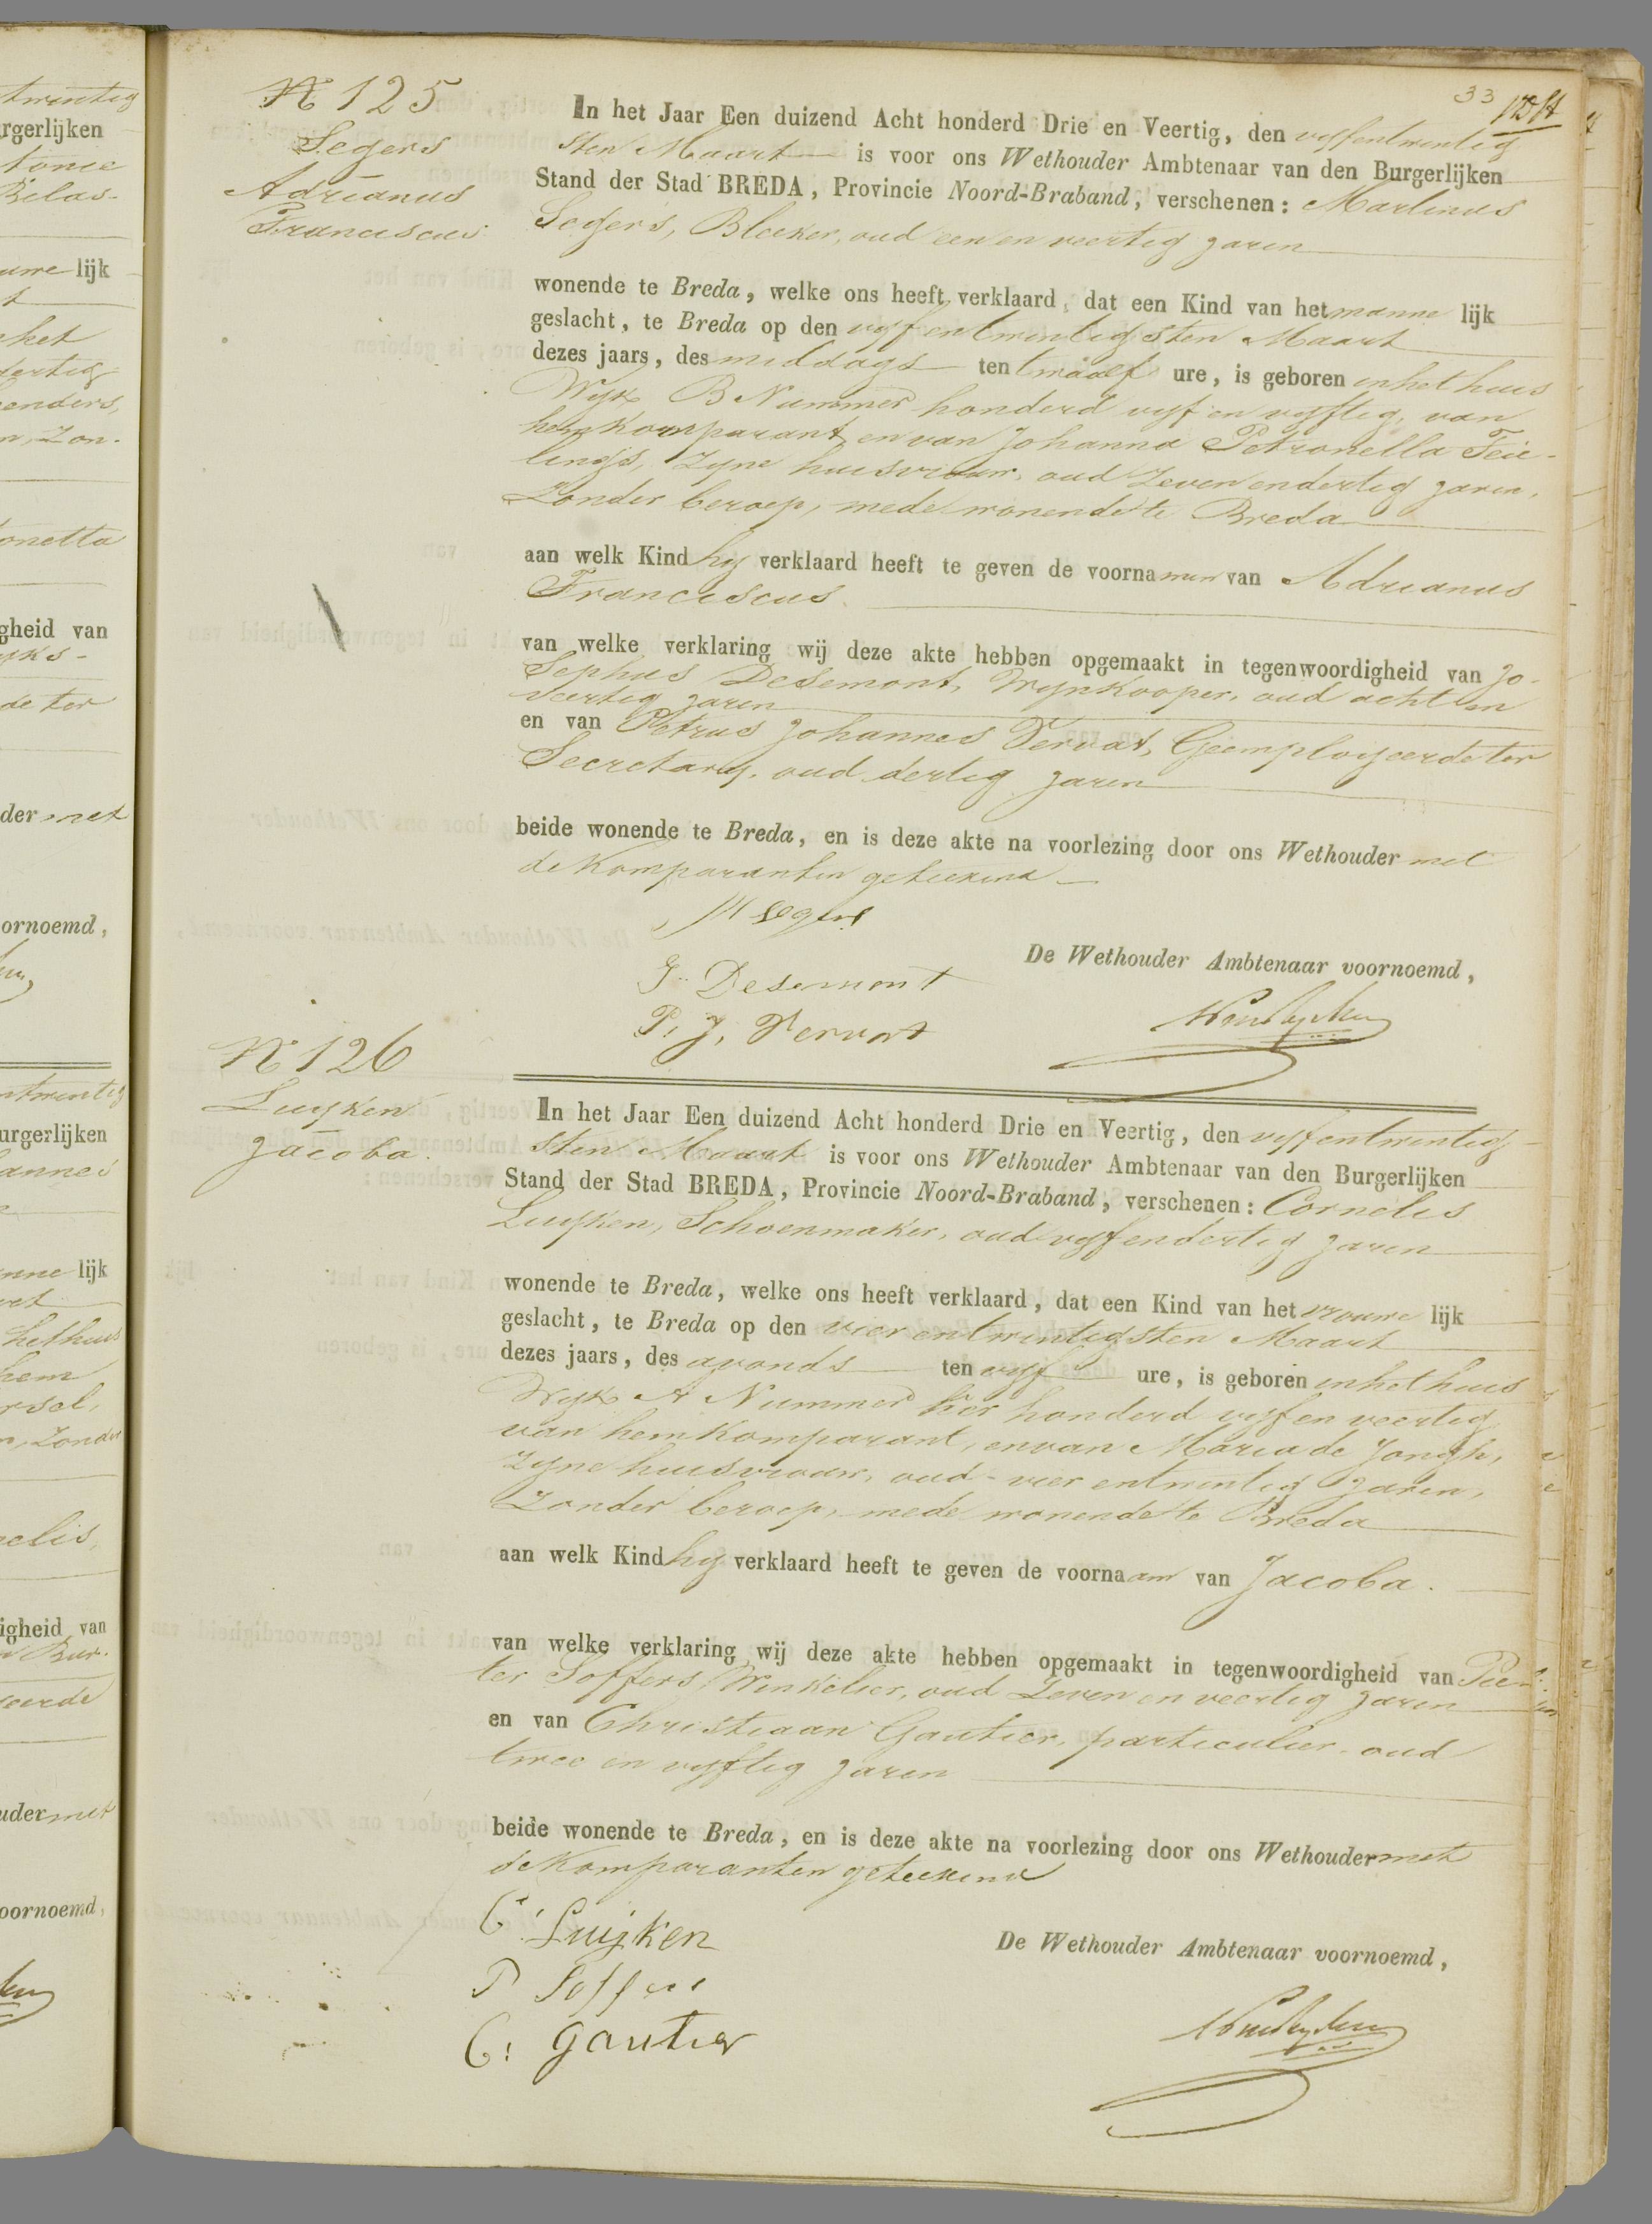 33
N 125
Segers
Adrianus
Franciscus
In het Jaar Een duizend Acht honderd Drie en Veertig, den vyfentwintig
sten Maart is voor ons Wethouder Ambtenaar van den Burgerlijken
Stand der Stad BREDA, Provincie Noord-Braband, verschenen: Martinus
Segers, Bleeker, oud een en veertig jaren
wonende te Breda, welke ons heeft verklaard, dat een Kind van het manne lijk
geslacht, te Breda op den vyf en twintigsten Maart
dezes jaars, des middags ten twaalf ure, is geboren in het huis
Wyk B Nummer honderd vyf en vyftig, van
hem Komparant, en van Johanna Petronella Teie-
lings, Zyne huisvrouw, oud Zeven en dertig jaren,
Zonder beroep, mede wonende te Breda
aan welk Kind hy verklaard heeft te geven de voornamen van Adrianus
Franciscus.
van welke verklaring wij deze akte hebben opgemaakt in tegenwoordigheid van Jo-
sephus Desemont, Wynkooper, oud acht en
veertig jaren
en van Petrus Johannes Vervat, Geemployeerde ter
Secretary, oud dertig jaren
beide wonende te Breda, en is deze akte na voorlezing door ons Wethouder met
de Komparanten geteekend
M Segers
J. Desemont
P. J. Vervat
De Wethouder Ambtenaar voornoemd,
N 126
Luyken
Jacoba.
In het Jaar Een duizend Acht honderd Drie en Veertig, den vyf entwintig-
sten Maart is voor ons Wethouder Ambtenaar van den Burgerlijken
Stand der Stad BREDA, Provincie Noord-Braband, verschenen: Cornelis
Luyken, Schoenmaker, oud vyf en dertig jaren
wonende te Breda, welke ons heeft verklaard, dat een Kind van het vrouwe lijk
geslacht, te Breda op den vier en twintigsten Maart
dezes jaars, des avonds ten vyf ure, is geboren in het huis
Wyk A Nummer vier honderd vyf en veertig
van hem Komparant, en van Maria de Jongh,
Zyne huisvrouw, oud vier entwintig jaren,
Zonder beroep, mede wonende te Breda
aan welk Kind hy verklaard heeft te geven de voornaam van Jacoba.
van welke verklaring wij deze akte hebben opgemaakt in tegenwoordigheid van Pie-
ter Soffers, Winkelier, oud Zeven en veertig jaren
en van Christiaan Gautier, particulier, oud
twee en vyftig jaren
beide wonende te Breda, en is deze akte na voorlezing door ons Wethouder met
de Komparanten geteekend
C. Luijken
P Soffers
C: Gautier
De Wethouder Ambtenaar voornoemd,